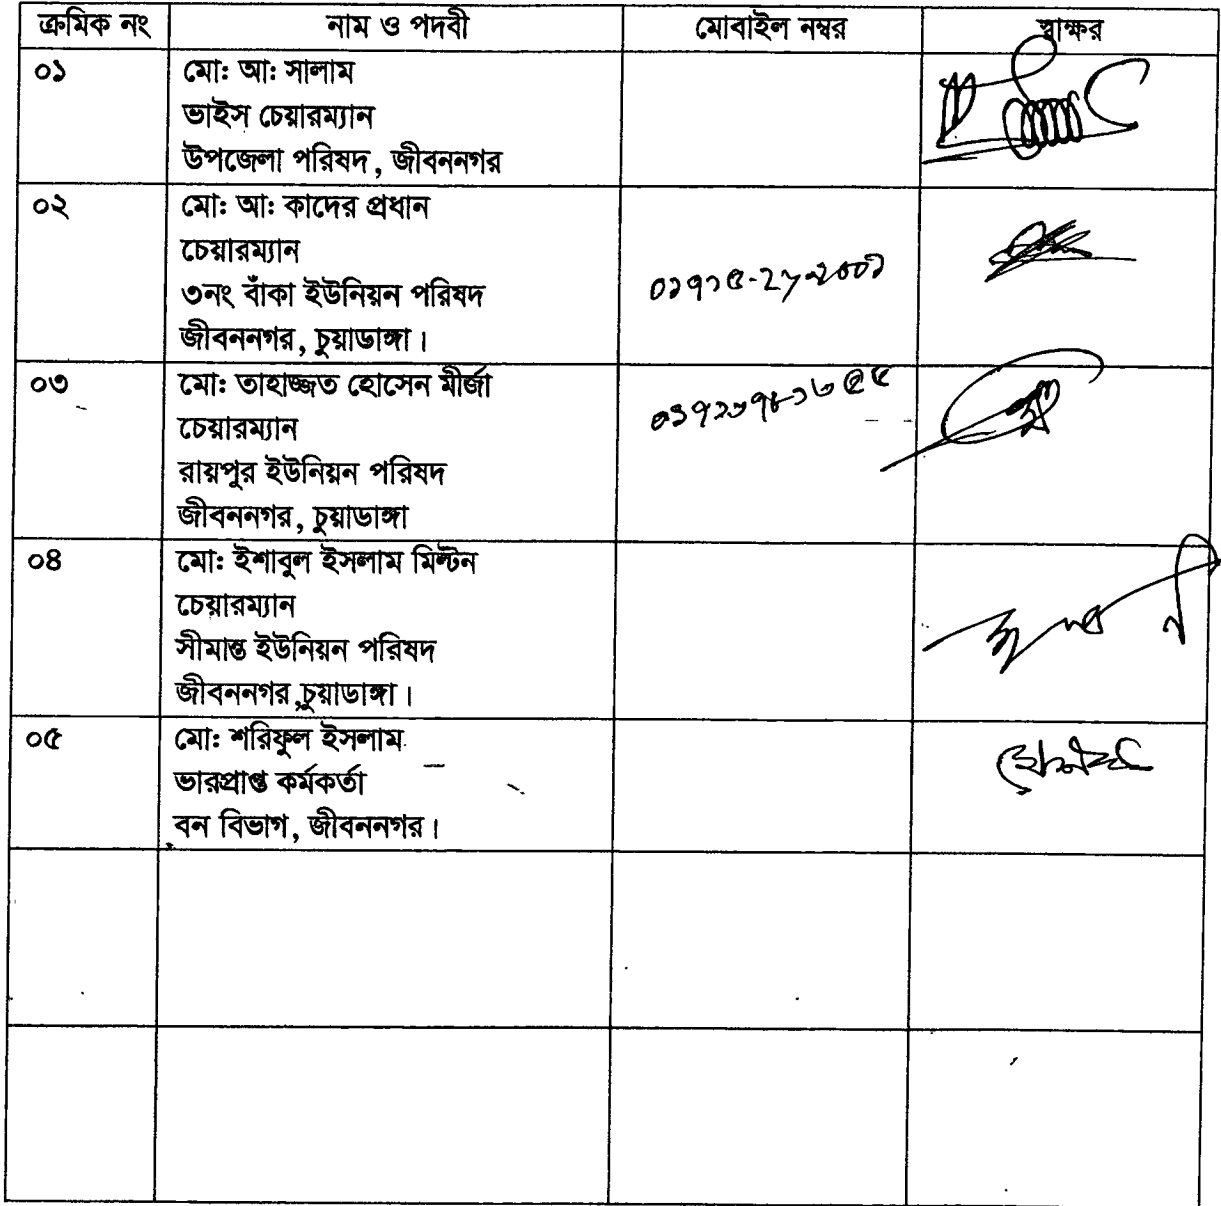 ক্রমিক নং নাম ও পদবী মোবাইল নম্বর স্বাক্ষর
০১ মো: আ: সালাম
ভাইস চেয়ারম্যান
উপজেলা পরিষদ, জীবননগর
০২ মো: আ: কাদের প্রধান
চেয়ারম্যান
৩নং বাঁকা ইউনিয়ন পরিষদ
জীবননগর, চুয়াডাঙ্গা।
০৩ মো: তাহাজ্জত হোসেন মীর্জা
চেয়ারম্যান
রায়পুর ইউনিয়ন পরিষদ
জীবননগর, চুয়াডাঙ্গা
০৪ মো: ইশাবুল ইসলাম মিল্টন
চেয়ারম্যান
সীমান্ত ইউনিয়ন পরিষদ
জীবননগর,চুয়াডাঙ্গা।
০৫ মো: শরিফুল ইসলাম
ভারপ্রাপ্ত কর্মকর্তা
বন বিভাগ, জীবননগর।